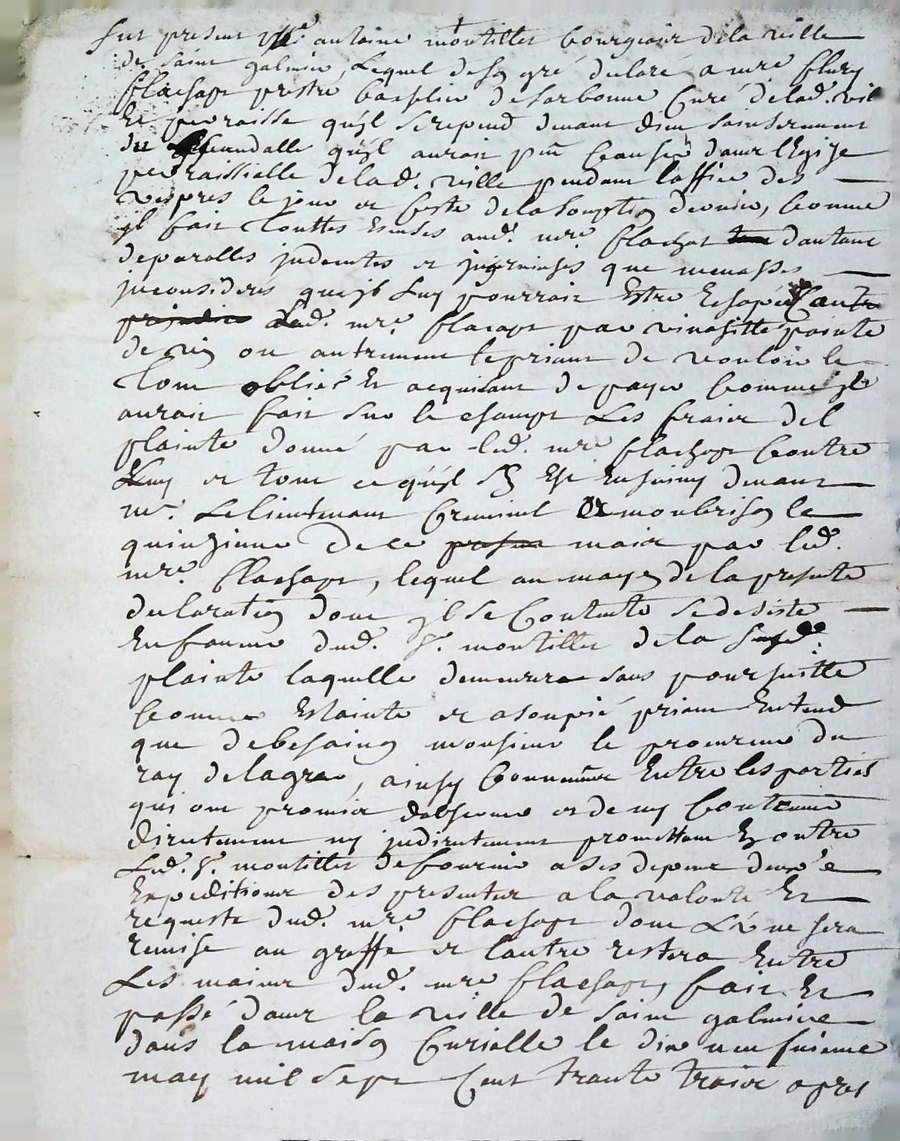 fut present sr. antoine montillet bourgeois de la ville
de Saint galmier, Lequel de son gré declare a mre. fleury
flachapt prestre bachelier de sorbonne Curé de lad. ville
Et parroisse qu'il se repend devant dieu sainserement
du scandalle qu'il auroit peu causer dans l'Eglize
parraissialle de lad. ville pendant l'office des
vespres le jour et feste de la somption derniere, comme
il fait touttes Excuses aud. mre flachat d'autant
de parolles indecentes et injurieuses que menasses
inconsiderés quy luy pourroit Estre Echapées Contre
led. mre. flachapt par vivasitte pointe
de vin ou autrement le priant de vouloir le
tout oblier Et acquiesant de payer comme il
auroit fait sur le champt Les fraix de
plainte donné par led. mre flachapt Contre
Luy et tout ce qu'il s'en Est Ensuivy devant
mr. Le lieutenant Criminel de montbrison le
quinzieme de ce mois par led.
mre. flachapt, lequel au moyen de la presente
declaration dont il se Contente se desiste
En faveur dud. sr. montillet de la susd.
plainte laquelle demeurera sans poursuitte
comme Estainte et asoupie priant Entend
que de besoing monsieur le procureur du
roy de l'agreer, ainsy Convenu Entre les parties
qui ont promis d'observer et de ny Contrevenir
directement ny indirectement promettant En outre
Led. sr. montillet de fournir a ses depens deux
Expeditions des presentes a la volonté Et
requeste dud. mre flachapt dont L'une sera
remise au greffe et l'autre restera Entre
Les mains dud. mre flachapt, fait Et
passé dans la ville de Saint galmier
dans la maison Curialle le dix neufvieme
may mil sept Cent trante troix apres